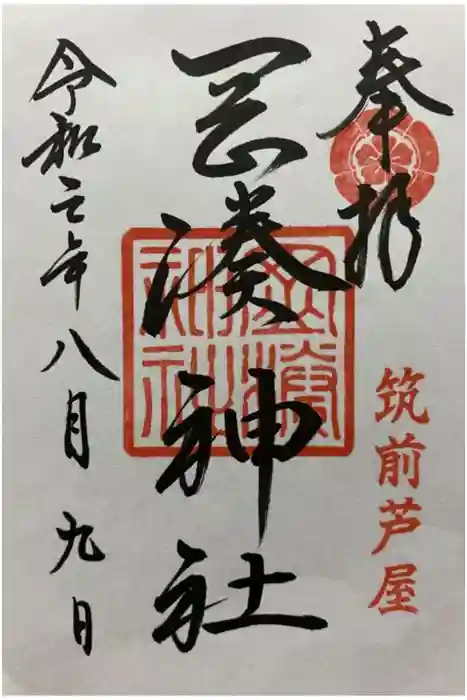 奉拝
筑前芦屋
岡湊神社
令和元年八月九日